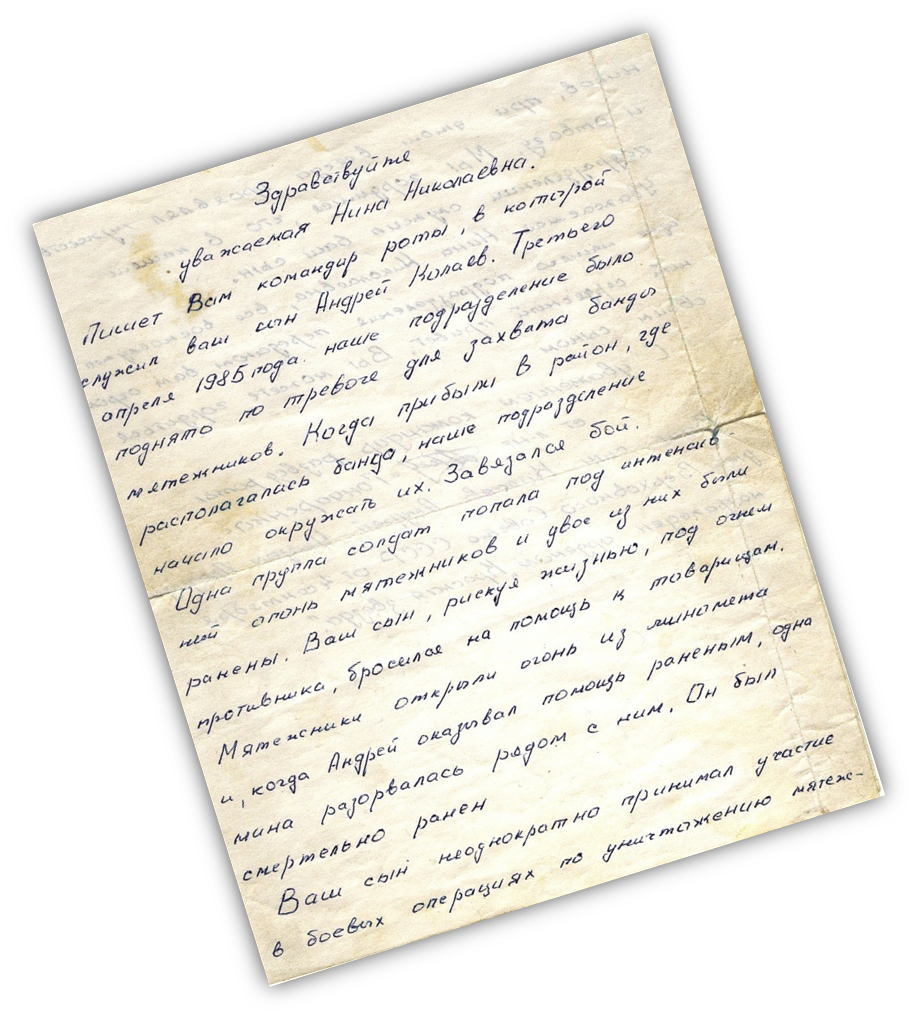 Здравствуйте
уважаемая Нина Николаевна.
Пишет Вам командир роты, в которой
служил ваш сын Андрей Колаев. Третьего
апреля 1985 года. наше подразделение было
поднято по тревоге для захвата банды
мятежников. Когда прибыли в район, где
располагалась банда, наше подразделение
начало окружать их. Завязался бой.
Одна группа солдат попала под интенсив-
ный огонь мятежников и двое из них были
ранены. Ваш сын, рискуя жизнью, под огнем
противника, бросился на помощь к товарищам.
Мятежники открыли огонь из миномета
и, когда Андрей оказывал помощь раненым, одна
мина разорвалась рядом с ним. Он был
смертельно ранен
Ваш сын неоднократно принимал участие
в боевых операциях по уничтожению мятеж-